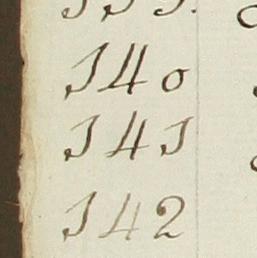 140
141
142